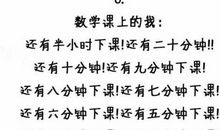 数学课上的我:
还有半小时下课!还有二十分钟!!
还有十分钟!!还有九分钟下课!
还有八分钟下课!还有七分钟下课!
还有六分钟下课!还有五分钟下课!